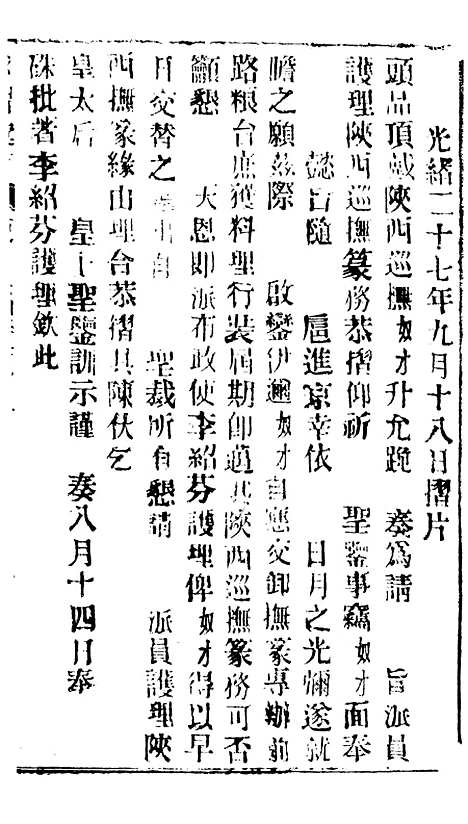 光緒二十七年九月十八日摺片
頭品頂戴陝西巡撫奴才升允跪 奏爲請 旨派員
護理陝西巡撫篆務恭摺仰祈 聖鑒事竊奴才面奉
懿旨隨 扈進京幸依 日月之光彌遂就
瞻之願茲際 啟鑾伊邇奴才自應交卸撫篆專辦前
路粮台庶獲料理行裝屆期卽遵其陝西巡撫篆務可否
籲懇 天恩即派布政使李紹芬護理俾奴才得以早
日交替之 自 聖裁所有懇請 派員護理陝
西撫篆緣由理合恭摺具陳伏乞
皇太后 皇上聖鑒訓示謹 奏八月十四日奉
硃批著李紹芬護理欽此